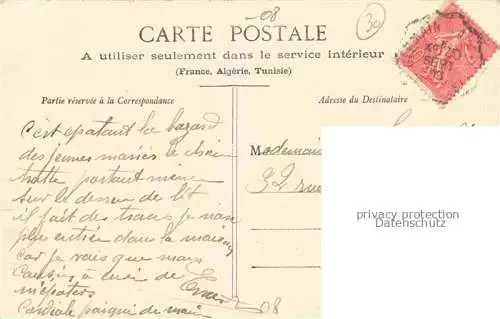 -08
30
CARTE POSTALE
A utiliser seulement dans le service intérieur
(France, Algérie, Tunisie)
Partie réservée à la Correspondance
Adresse du Destinataire
c'est epatant le bazard
des jeunes mariés le chien
trotte partout meme
sur le dessus de lit
il fait des traces je
plus entrée dans la maison
car je vois que mes
à cuir de
Cordiale poignée de main
08
Mademoi
32 rue
privacy protection
Datenschutz